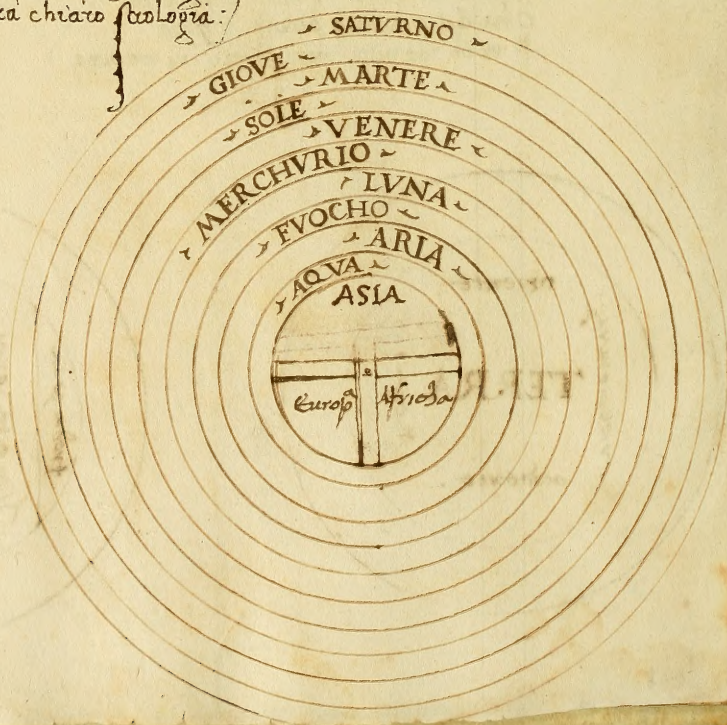 chiaro strologia:
SATVRNO
GIOVE
MARTE
SOLE
VENERE
MERCHVRIO
LVNA
FVOCHO
ARIA
AQVA
ASIA
Europa Africha
TERRA